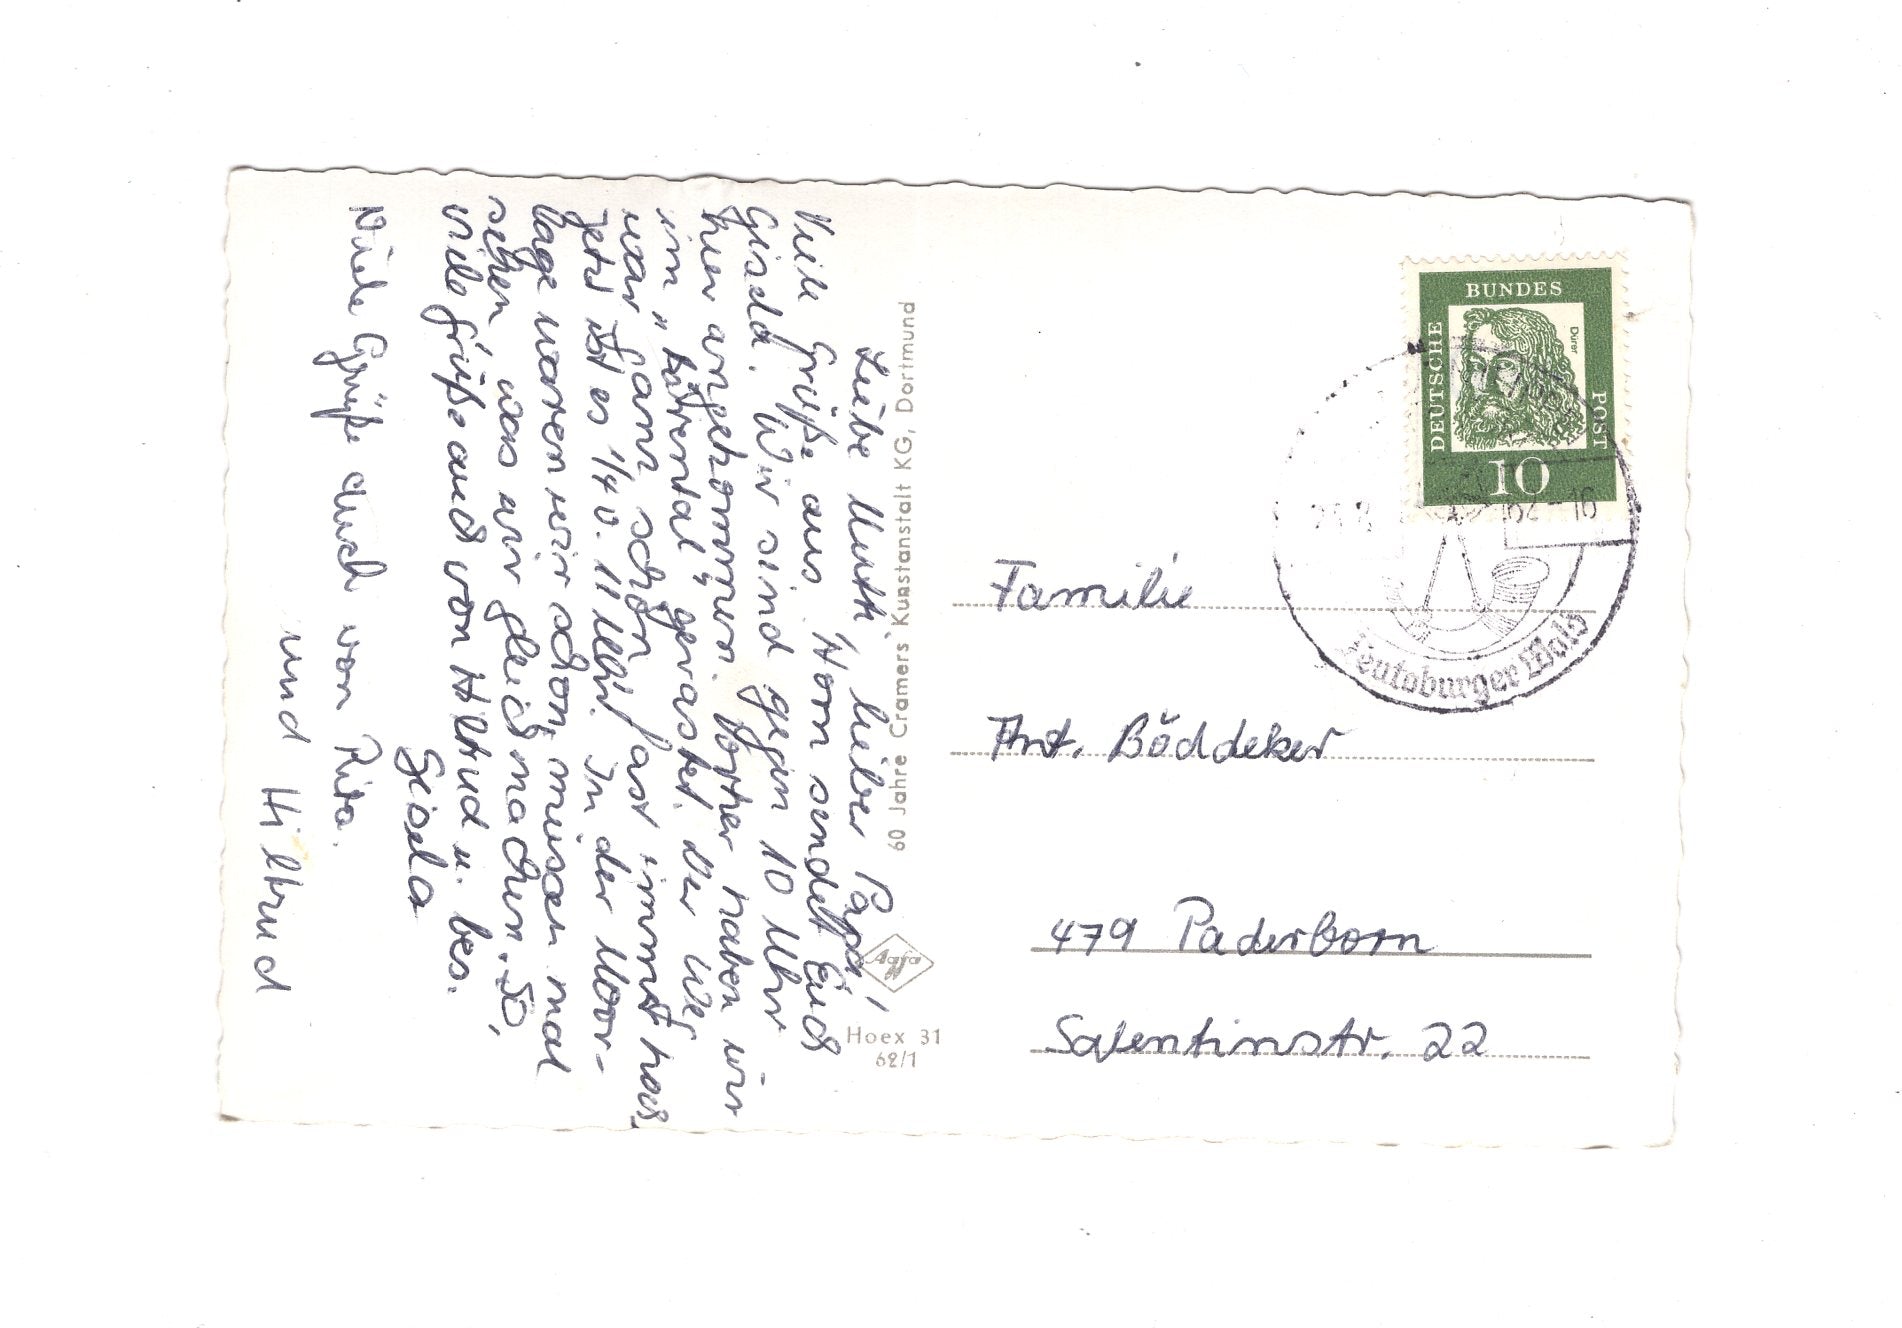 Liebe Mutti, lieber Papa!
Viele Grüße aus Horn sendet Euch
Gisela. Wir sind gegen 10 Uhr
hier angekommen. Vorher haben wir
im „ gerastet. Der Weg
war ganz schön fast immer hoch,
jetzt ist es 1/4 v. 11 Uhr. In der Moor-
lage waren wir schon, müssen mal
sehen, was wir gleich machen. So,
viele Grüße auch von Hiltrud u. bes.
Gisela
Viele Grüße auch von Rita.
und Hiltrud
60 Jahre Cramers Kunstanstalt KG, Dortmund
Agfa
Hoex 31
62/1
DEUTSCHE
BUNDES
POST
Dürer
10
62-16
Teutoburger Wald
Familie
Ant. Böddeker
479 Paderborn
Salentinstr. 22